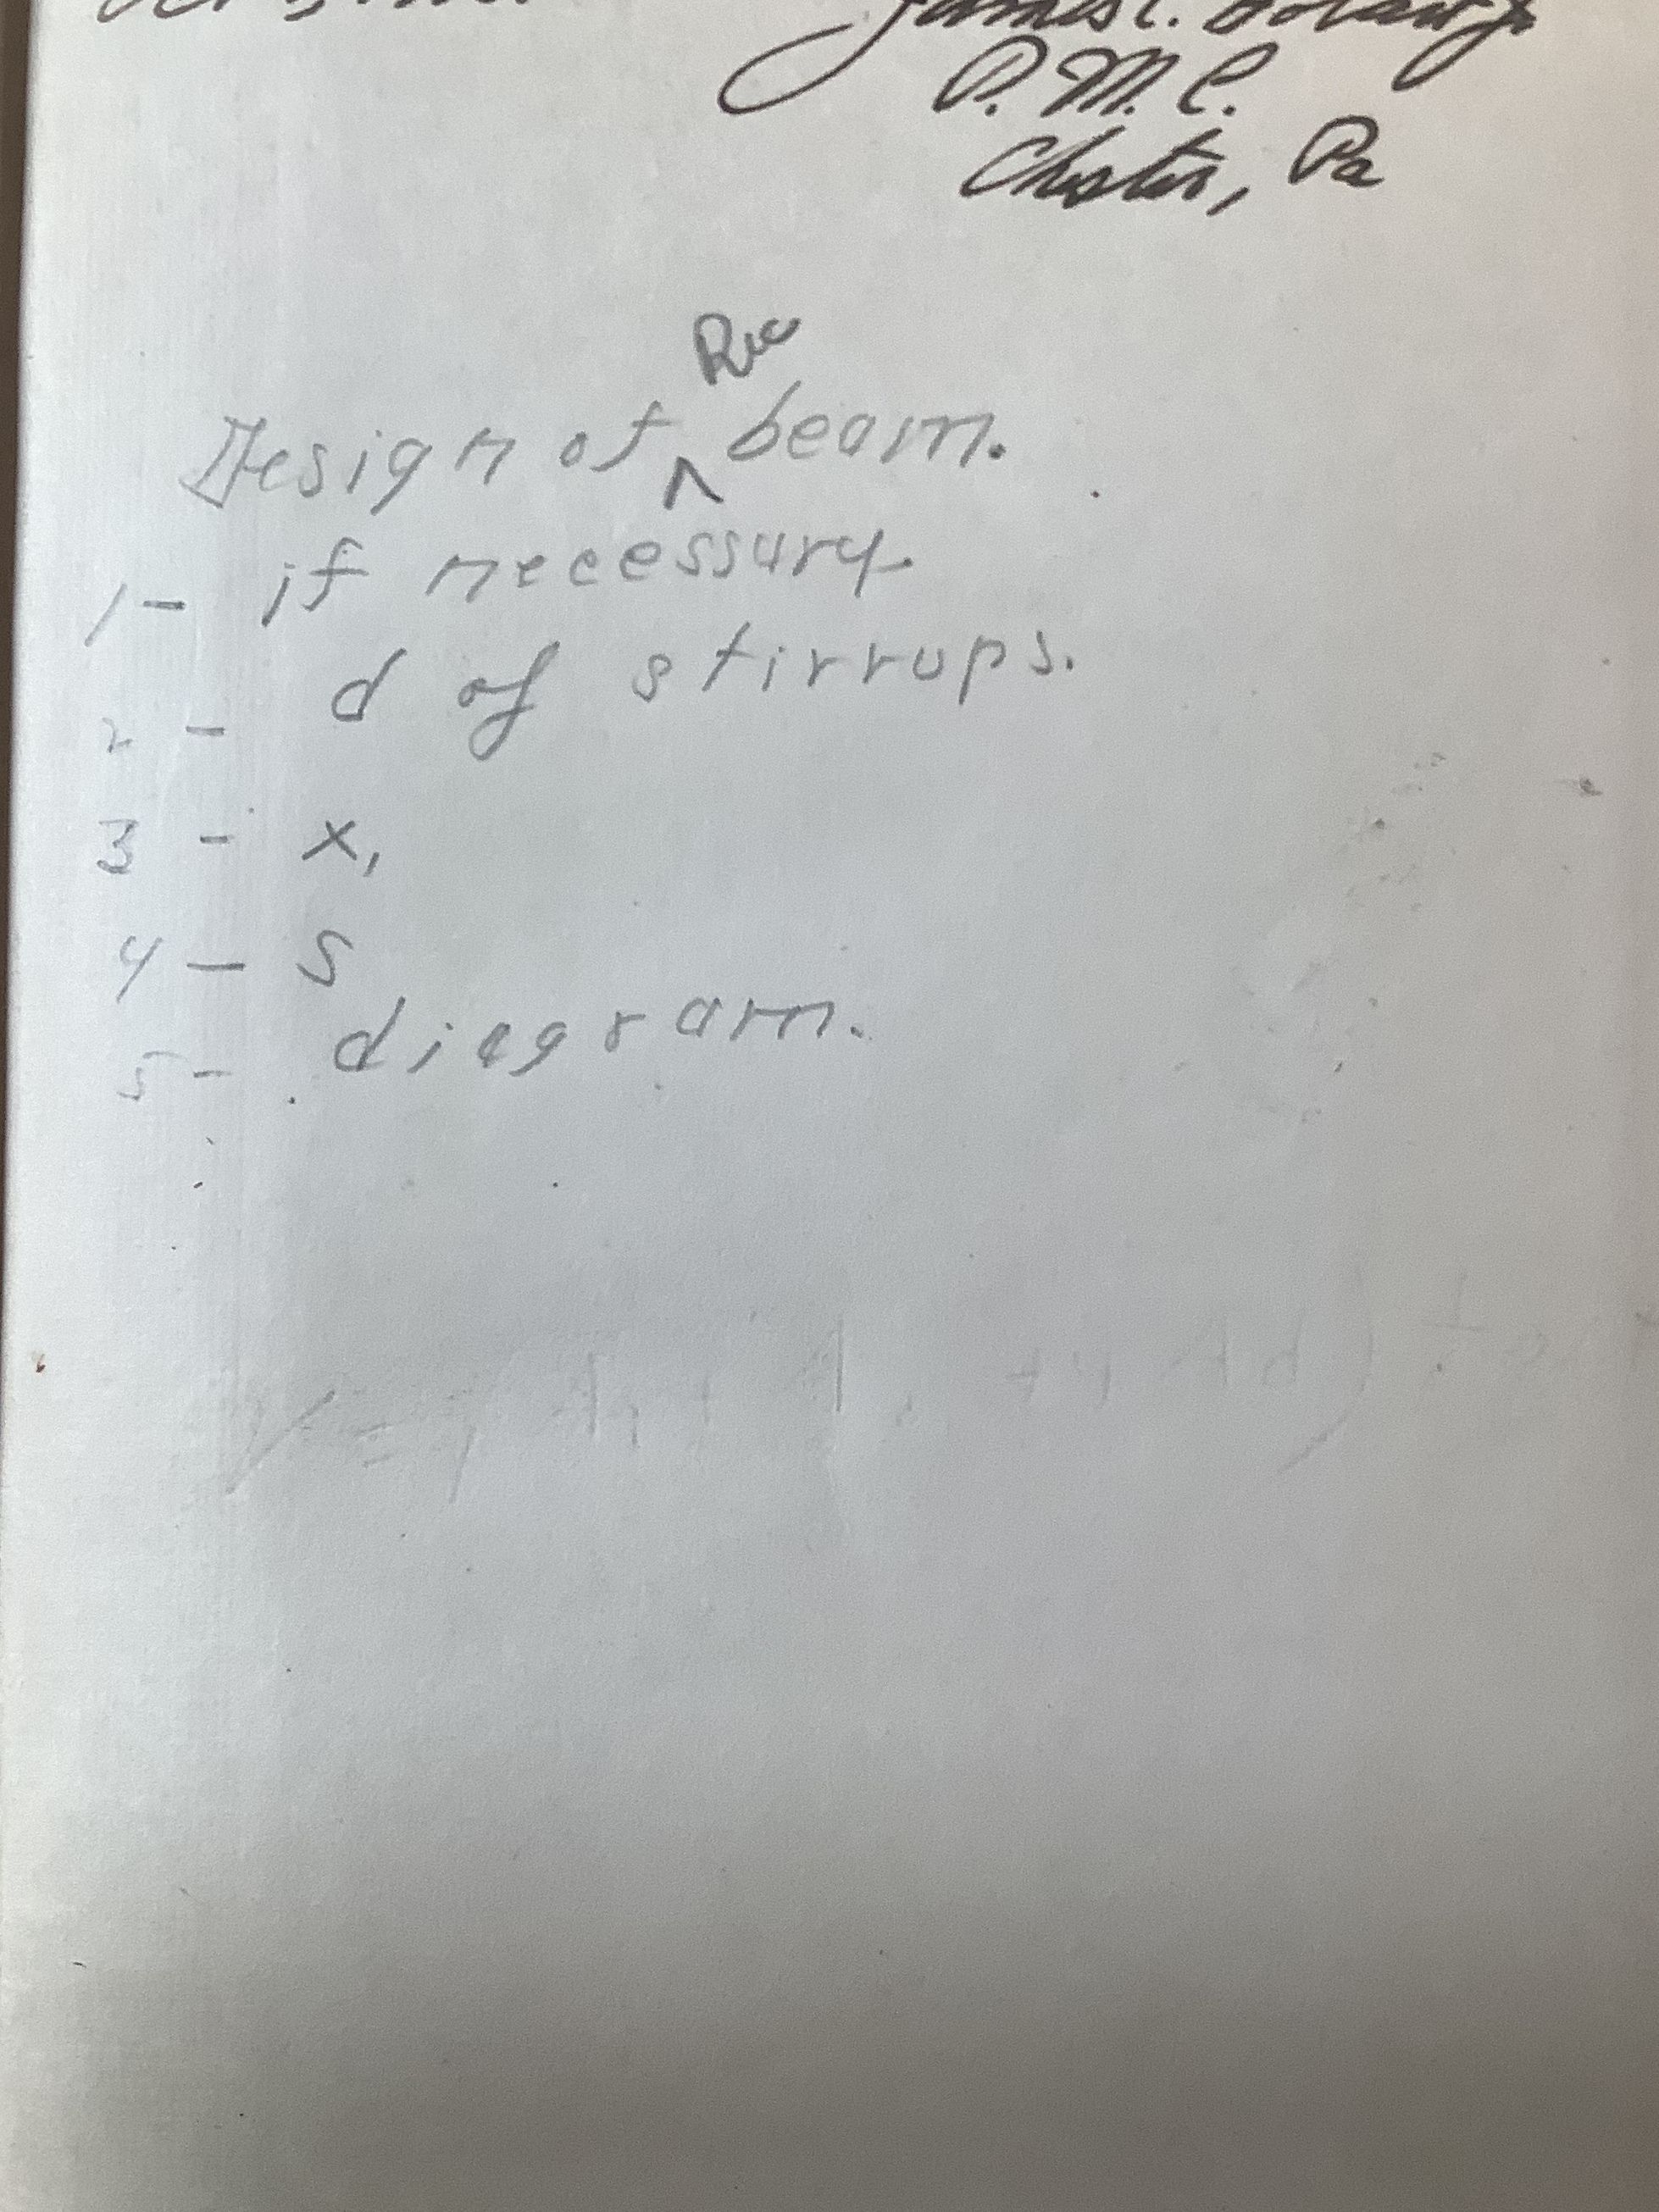 James C.
P. M. C.
Chester, Pa
Design of beam.
1 - if necessary
2 - d of stirrups.
3 - x,
4 - S
5 - diagram.